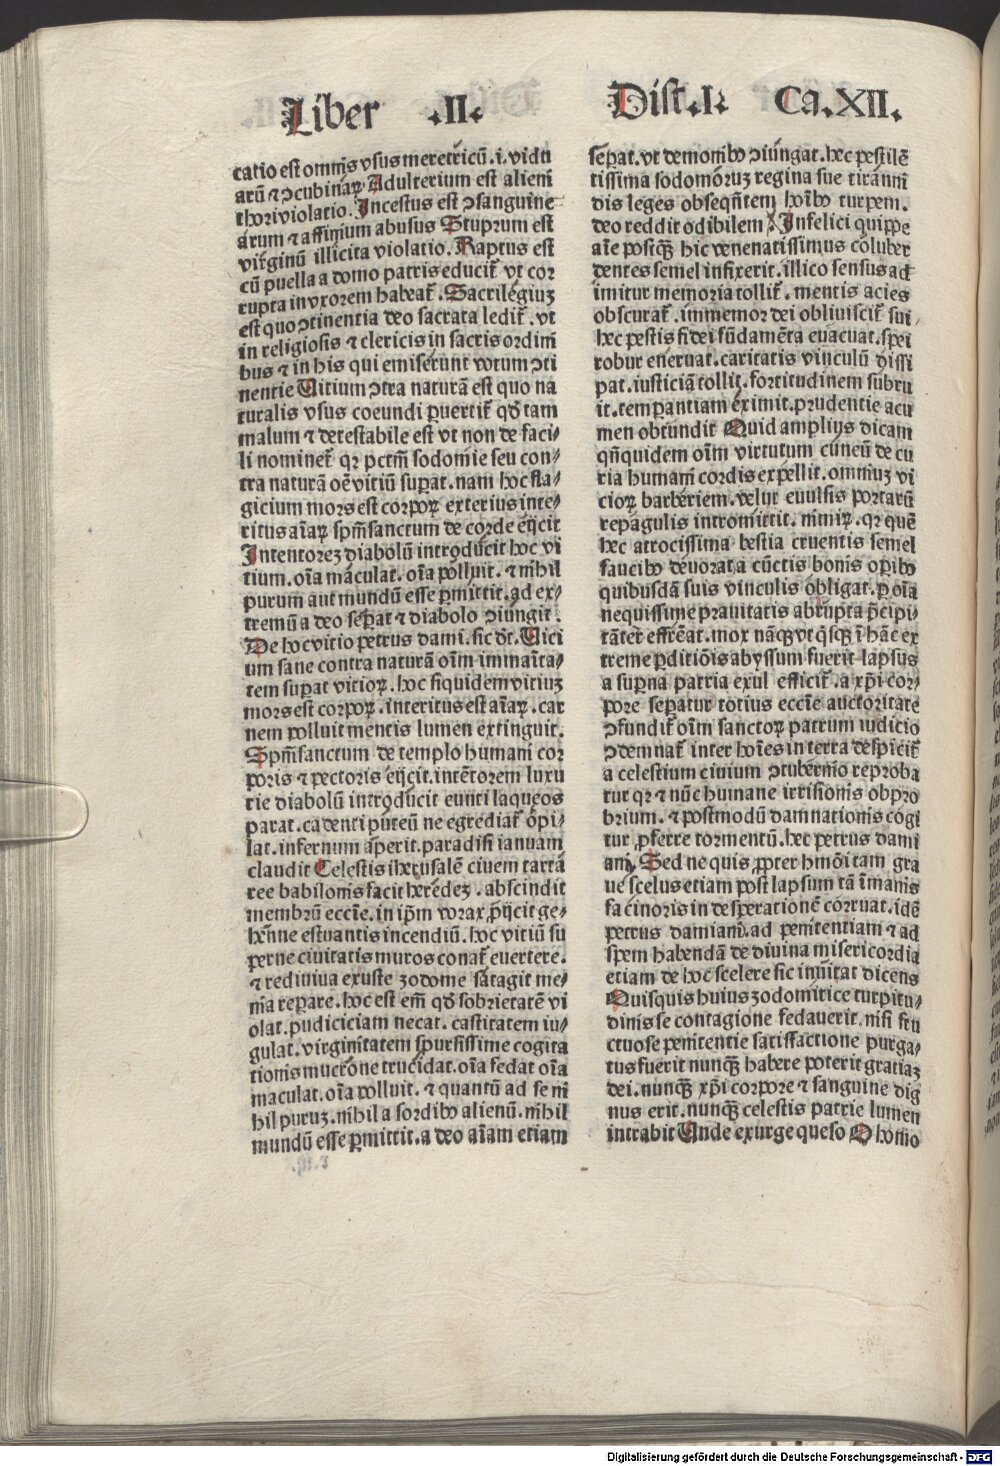 Liber .II. Dist.I. Ca.XII.
catio est omnis vsus meretricū.i.vidu
arū ⁊ ↄcubinaꝝ Adulterium est alieni
thori violatio. Incestus est ↄsanguine
arum ⁊ affinium abusus Stuprum est
virginū illicita violatio. Raptus est
cū puella a domo patris educit̄ vt cor
rupta in vxorem habeat̄. Sacrilegiuz
est quo ↄtinentia deo sacrata ledit̄. vt
in religiosis ⁊ clericis in sacris ordini
bus ⁊ in his qui emiserunt votum ↄti
nentie Uitium ↄtra naturā est quo na
turalis vsus coeundi ꝑuertit̄ qd̄ tam
malum ⁊ detestabile est vt non de faci/
li nominet̄ qꝛ pctm̄ sodomie seu con/
tra naturā oē vitiū suꝑat. nam hoc fla/
gicium mors est corpoꝝ exterius inte/
ritus aīaꝝ spm̄sanctum de corde eijcit
Intentorez diabolū introducit hoc vi
tium. oīa maculat. oīa polluit. ⁊ nihil
purum aut mundū esse ꝑmittit. ad ex/
tremū a deo seꝑat ⁊ diabolo ↄiungit.
De hoc vitio petrus dami. sic dt̄. Uici
um sane contra naturā oīm immaīta/
tem suꝑat vitioꝝ. hoc siquidem vitiuz
mors est corpoꝝ. interitus est aīaꝝ. car
nem polluit mentis lumen extinguit.
Spm̄sanctum de templo humani cor
poris ⁊ pectoris eijcit. intētorem luxu
rie diabolū introducit eunti laqueos
parat. cadenti puteū ne egrediat̄ opi/
lat. infernum aperit. paradisi ianuam
claudit Celestis iherusalē ciuem tarta
ree babilonis facit heredez. abscindit
membrū eccīe. in ip̄m vorax ꝓijcit ge/
henne estuantis incendiū. hoc vitiū su
perne ciuitatis muros conat̄ euertere.
⁊ rediuiua exuste zodome satagit me/
nia reparare. hoc est em̄ qd̄ sobrietatē vi
olat. pudiciciam necat. castitatem iu/
gulat. virginitatem spurcissime cogita
tionis mucrone trucidat. oīa fedat oīa
maculat. oīa polluit. ⁊ quantū ad se ni
hil puruz. nihil a sordibꝰ alienū. nihil
mundū esse ꝑmittit. a deo aīam etiam
seꝑat. vt demonibꝰ ↄiungat. hec pestilē
tissima sodomoruz regina sue tiranni
dis leges obseqn̄tem hoībꝰ turpem.
deo reddit odibilem Infelici quippe
aīe postqꝫ hic venenatissimus coluber
dentes semel infixerit. illico sensus ad
imitur memoria tollit̄. mentis acies
obscurat̄. immemor dei obliuiscit̄ sui
hec pestis fidei fūdamēta euacuat. spei
robur eneruat. caritatis vinculū dissi
pat. iusticiā tollit. fortitudinem subru
it. temꝑantiam eximit. prudentie acu
men obtundit Quid amplius dicam
qn̄quidem oīm virtutum cuneū de cu
ria humani cordis expellit. omniuz vi
cioꝝ barbariem. velut euulsis portarū
repagulis intromittit. nimiꝝ. qꝛ quē
hec atrocissima bestia cruentis semel
faucibꝰ deuorat. a cūctis bonis oꝑibꝰ
quibusdā suis vinculis obligat. ꝑ oīa
nequissime prauitatis abrupta p̄cipi/
tāter effreēat. mox nāqꝫ vt qsqꝫ ī hāc ex
treme ꝑditiōis abyssum fuerit lapsus
a superna patria exul efficit̄. a xp̄i cor/
pore seꝑatur totius eccīe auctoritate
ↄfundit̄ oīm sanctoꝝ patrum iudicio
ↄdemnat̄ inter hoīes in terra despicit̄
a celestium ciuium ↄtubernio reproba
tur qꝛ ⁊ nūc humane irrisionis obpro
brium. ⁊ postmodū damnationis cogi
tur ꝓferre tormentū. hec petrus dami
ani. Sed ne quis ꝓpter hmōi tam gra
ue scelus etiam post lapsum tā īmanis
facinoris in desperationē corruat. idē
petrus damiani. ad penitentiam ⁊ ad
spem habendā de diuina misericordia
etiam de hoc scelere sic inuitat dicens
Quisquis huius zodomitice turpitu/
dinis se contagione fedauerit. nisi fru
ctuose penitentie satisfactione purga/
tus fuerit nunqꝫ habere poterit gratiaz
dei. nunqꝫ xp̄i corpore ⁊ sanguine dig
nus erit. nunqꝫ celestis patrie lumen
intrabit Unde exurge queso O homo
Digitalisierung gefördert durch die Deutsche Forschungsgemeinschaft - DFG